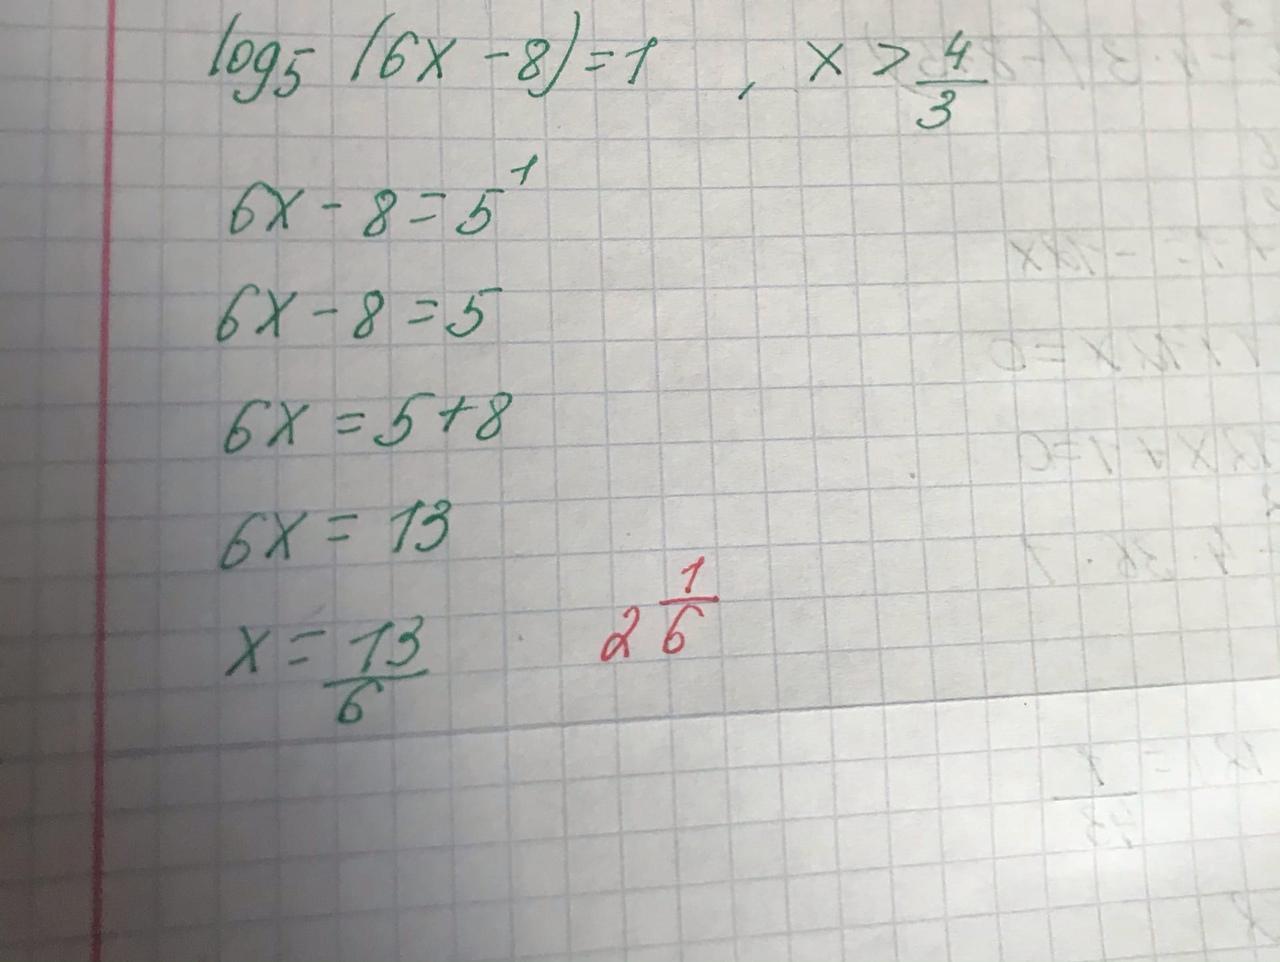 log₅ (6x - 8) = 1 , x > 4/3
6x - 8 = 5¹
6x - 8 = 5
6x = 5 + 8
6x = 13
x = 13/6 2 1/6